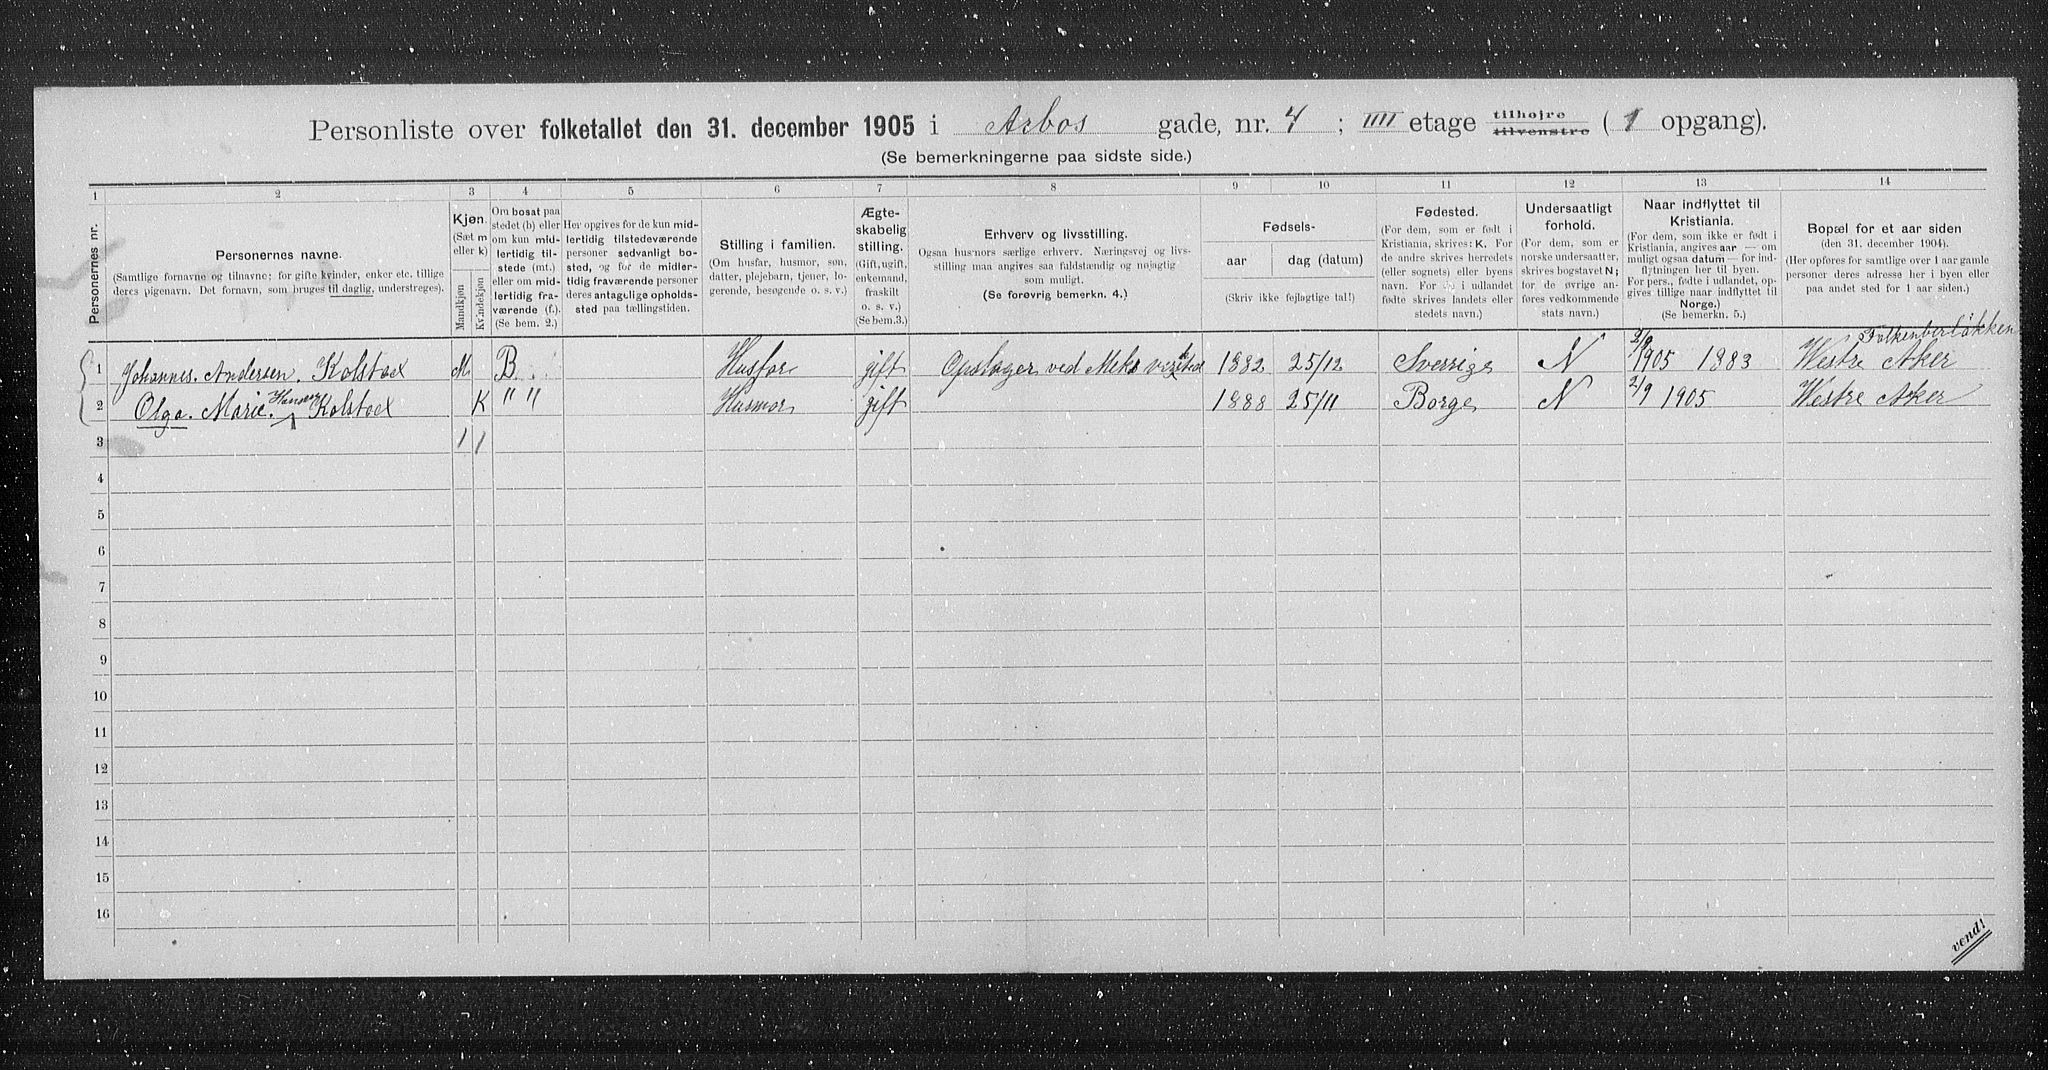 Personliste over folketallet den 31. december 1905 i Arbos gade, nr. 4 ; IIII etage tilhøjre tilvenstre ( 1 opgang).
(Se bemerkningerne paa sidste side.)
1 2 3 4 5 6 7 8 9 10 11 12 13 14
Personernes nr.
Personernes navne.
(Samtlige fornavne og tilnavne; for gifte kvinder, enker etc. tillige
deres pigenavn. Det fornavn, som bruges til daglig, understreges).
Kjøn.
(Sæt m
eller k)
Mandkjøn
Kvindekjøn
Om bosat paa
stedet (b) eller
om kun mid-
lertidig til-
stede (mt.)
eller om mid-
lertidig fra-
værende (f.).
(Se bem. 2.)
Her opgives for de kun mid-
lertidig tilstedeværende
personer sedvanligt bo-
sted, og for de midler-
tidig fraværende personer
deres antagelige opholds-
sted paa tællingstiden.
Stilling i familien.
(Om husfar, husmor, søn,
datter, plejebarn, tjener, lo-
gerende, besøgende o. s. v.)
Ægte-
skabelig
stilling.
(Gift, ugift,
enkemand,
fraskilt
o. s. v.)
(Se bem.3.)
Erhverv og livsstilling.
Ogsaa husmors særlige erhverv. Næringsvej og livs-
stilling maa angives saa fuldstændig og nøjagtig
som muligt.
(Se forøvrig bemerkn. 4.)
Fødsels-
aar
dag (datum)
(Skriv ikke fejlagtige tal!)
Fødested.
(For dem, som er født i
Kristiania, skrives: K. For
de andre skrives herredets
(eller sognets) eller byens
navn. For de i udlandet
fødte skrives landets eller
stedets navn.)
Undersaatligt
forhold.
(For dem, som er
norske undersaatter,
skrives bogstavet N;
for de øvrige an-
føres vedkommende
stats navn.)
Naar indflyttet til
Kristiania.
(For dem, som ikke er født i
Kristiania, angives aar — om
muligt ogsaa datum — for ind-
flytningen her til byen.
For pers., fødte i udlandet, op-
gives tillige naar indflyttet til
Norge.)
(Se bemerkn. 5.)
Bopæl for et aar siden
(den 31. december 1904).
(Her opføres for samtlige over 1 aar gamle
personer deres adresse her i byen eller
paa andet sted for 1 aar siden.)
Falkenberløkken
1 Johannes. Andersen. Kolstad M. B. Husfar gift Opslager ved Mek. 1882 25/12 Sverrige N 2/9 1905 1883 Westre Aker
Hansen
2 Olga. Marie. Kolstad K " " Husmor gift 1888 25/11 Borge N 2/9 1905 Westre Aker
3 1 1
4
5
6
7
8
9
10
11
12
13
14
15
16
vend!